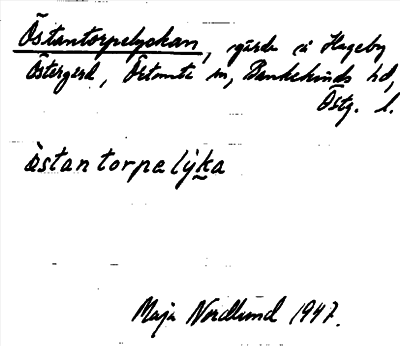 Östantorpelyckan, gärde å Hageby
Östergård, Örtomta sn, Bankekinds hd,
Östg. l.
östantorpelýka
Maja Nordlund 1947.